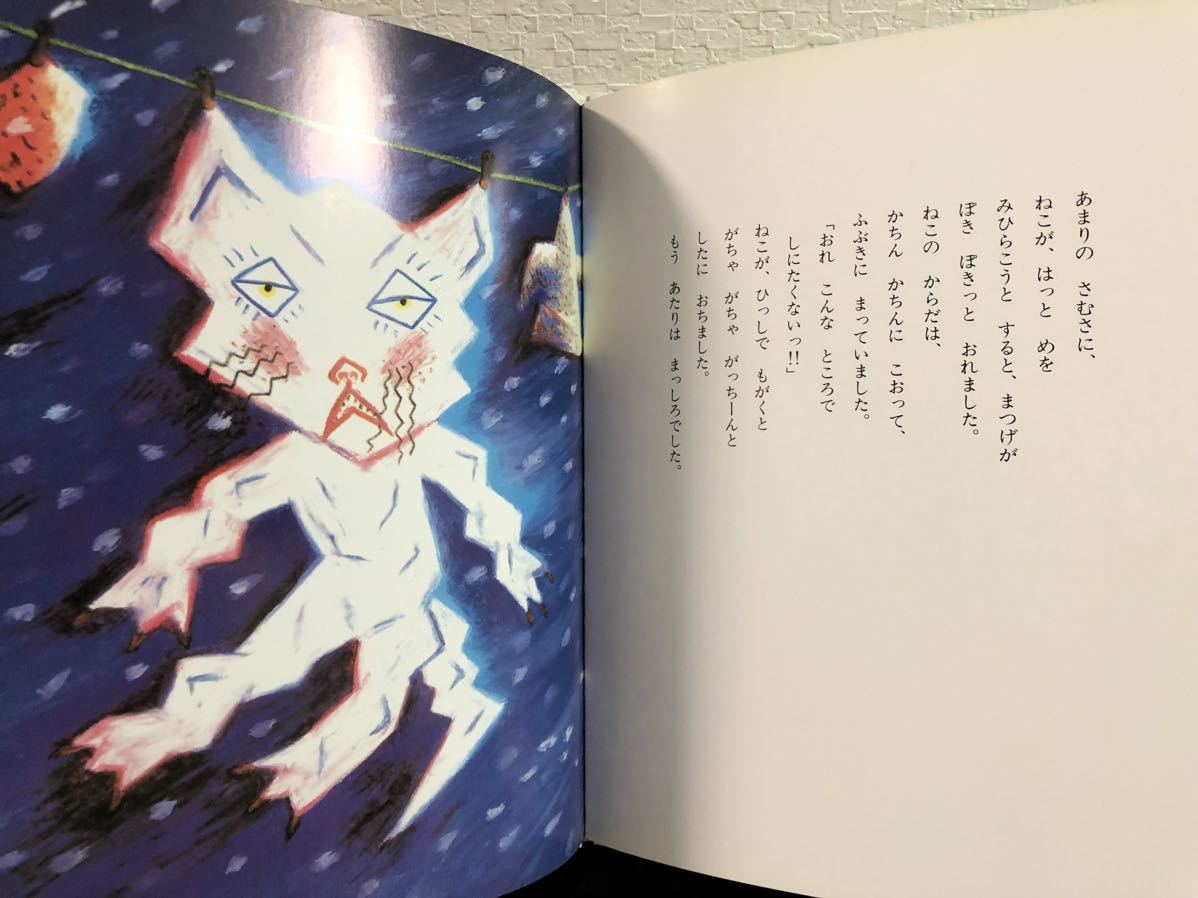 あまりの　さむさに、
ねこが、はっと　めを
みひらこうと　すると、まつげが
ぽき　ぽきっと　おれました。
ねこの　からだは、
かちん　かちんに　こおって、
ふぶきに　まっていました。
「おれ　こんな　ところで
しにたくないっ!!」
ねこが、ひっしで　もがくと
がちゃ　がちゃ　がっちーんと
したに　おちました。
もう　あたりは　まっしろでした。